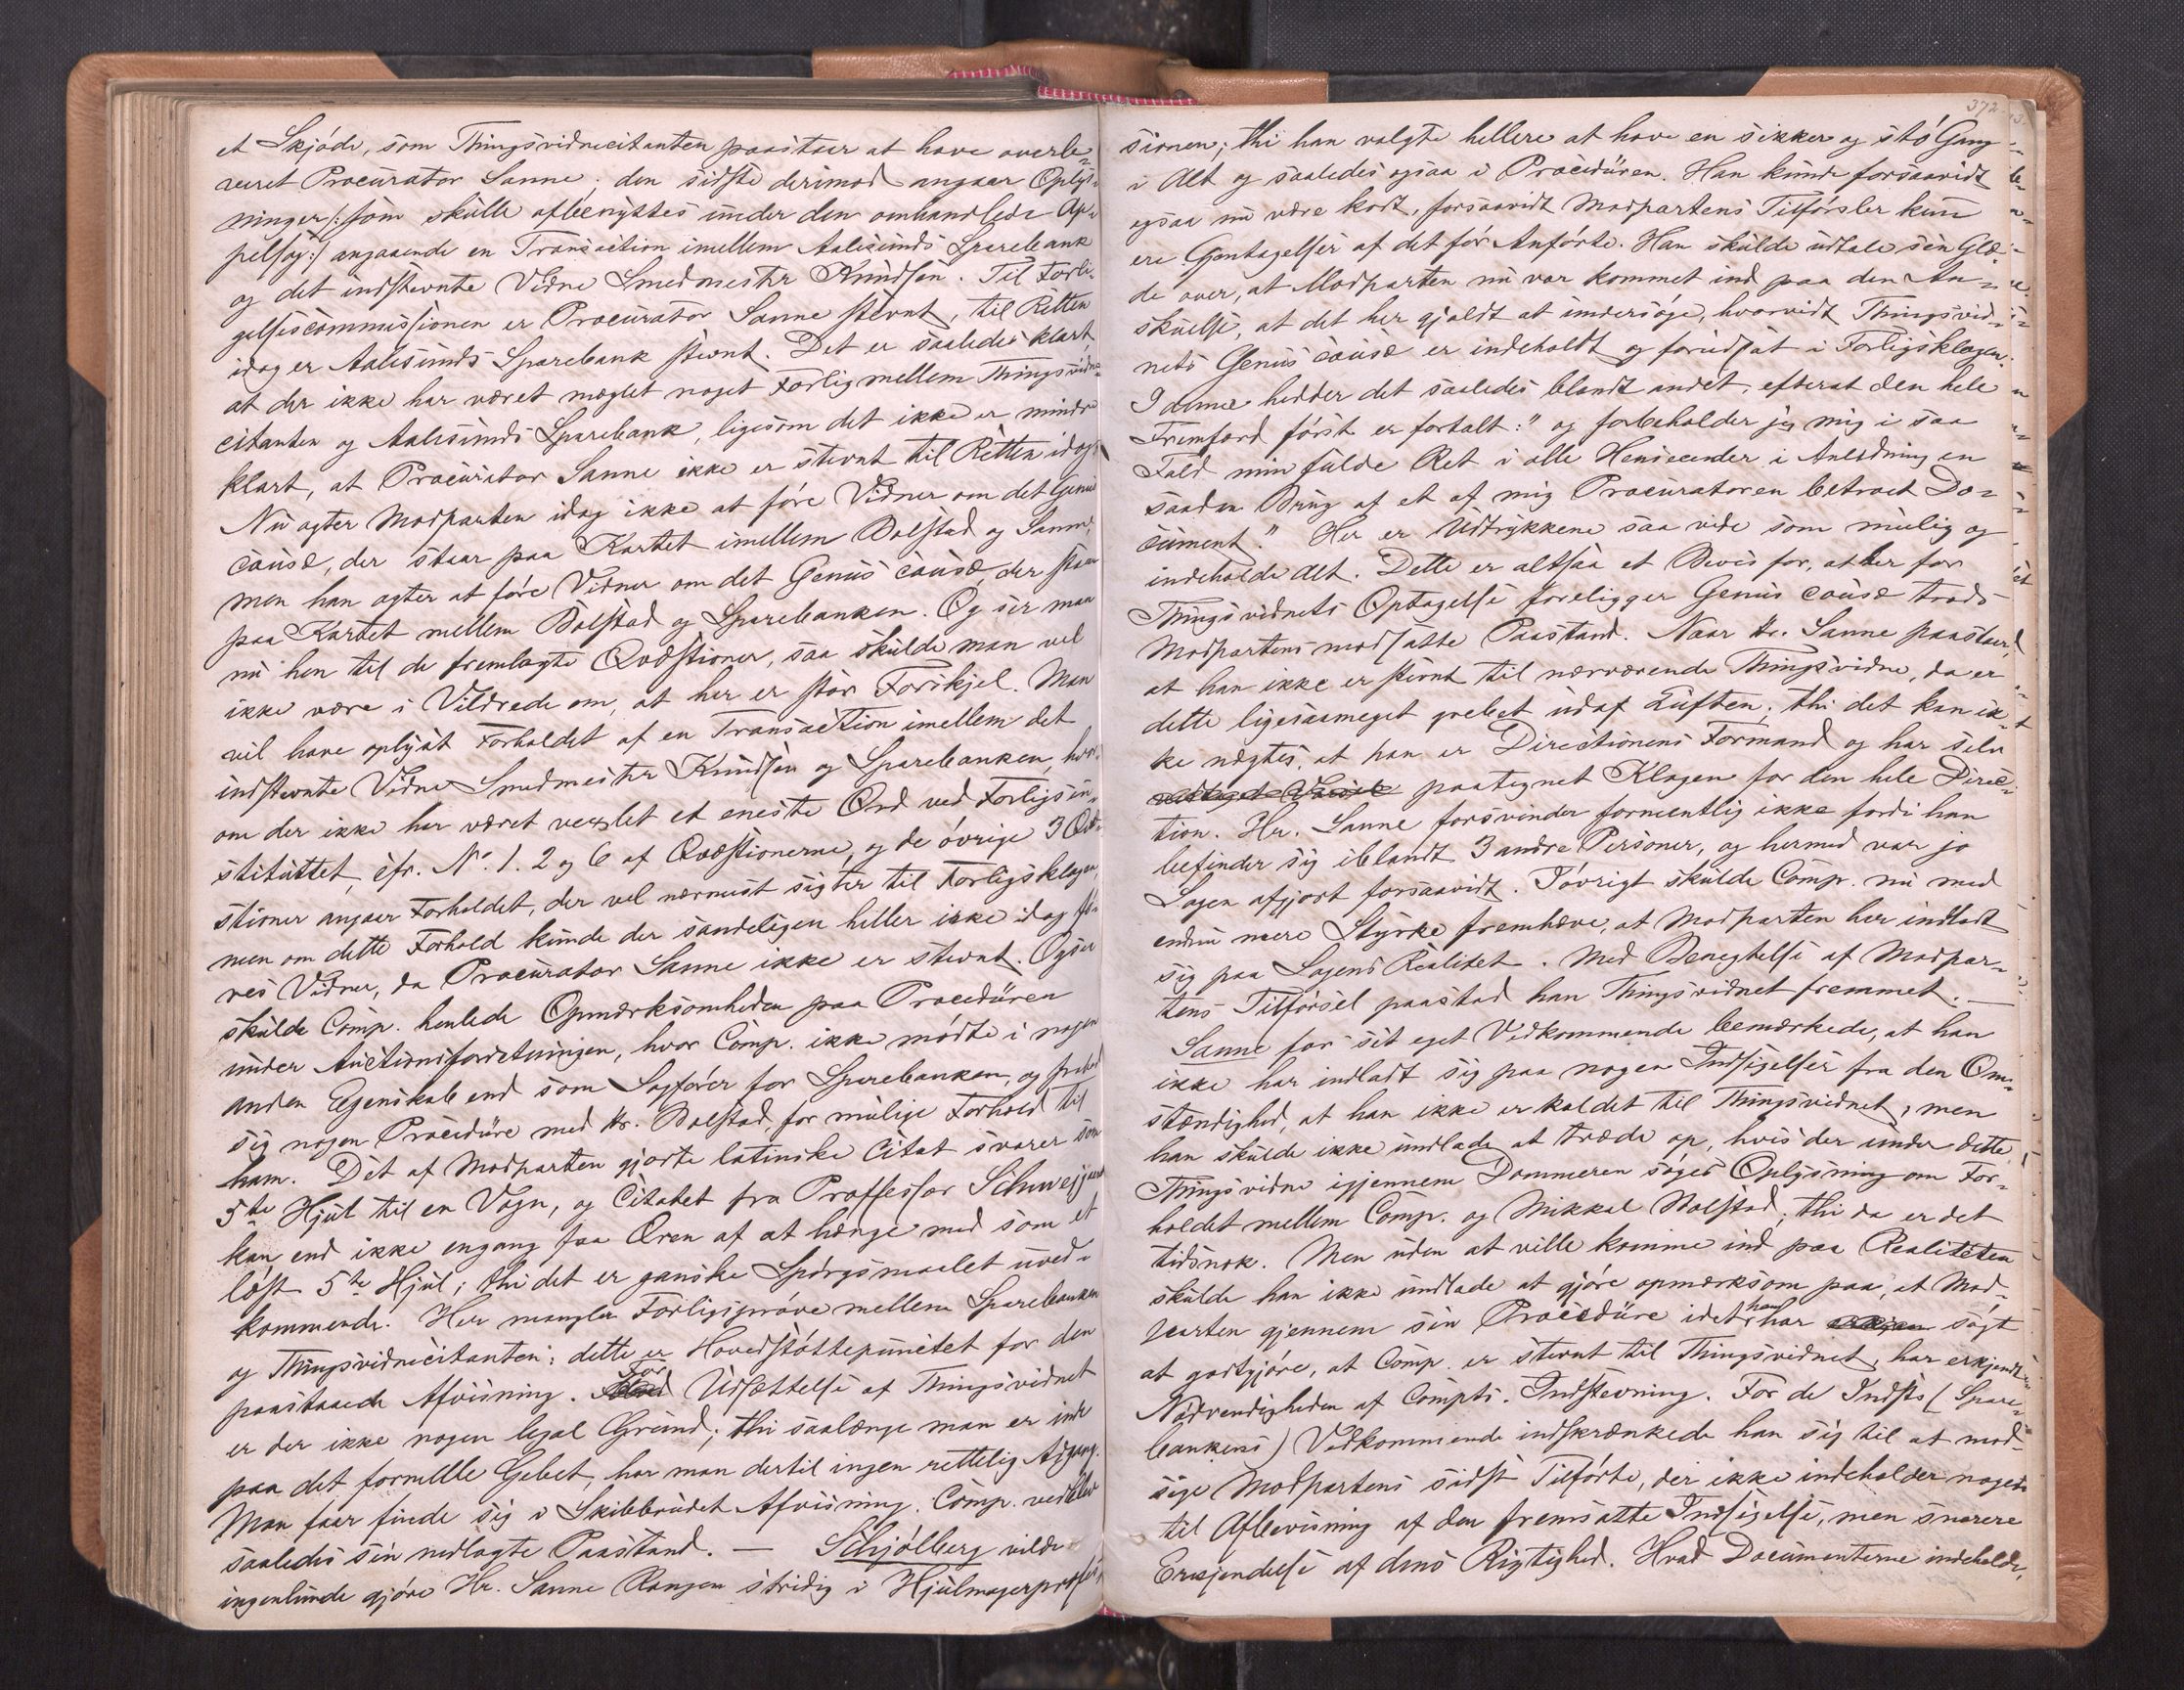 et Skjøde, som Thingsvidnecitanten paastaar at have overle-
veret Procurator Sanne; den sidste derimod angaar Oplys-
ninger /: som skulle afbenyttes under den omhandlede Ap-
pelsag :/ angaaende en Transaction imellem Aalesunds Sparebank
og det indstevnte Vidne Smedmester Knudsen. Til Forli-
gelsescommissionen er Procurator Sanne stevnt, til Retten
idag er Aalesunds Sparebank stevnt. Det er saaledes klart,
at der ikke har været mæglet noget Forlig mellem Thingsvidne-
citanten og Aalesunds Sparebank, ligesom det ikke er mindre
klart, at Procurator Sanne ikke er stevnt til Retten idag.
Nu agter Modparten idag ikke at føre Vidner om det Genus
causæ, der staar paa Kartet imellem Bolstad og Sanne,
men han agter at føre Vidner om det Genus causæ, der staar
paa Kartet mellem Bolstad og Sparebanken. Og ser man
nu hen til de fremlagte Qvæstioner, saa skulde man vel
ikke være i Vildrede om, at her er stor Forskjel. Man
vil have oplyst Forholdet af en Transaction imellem det
indstevnte Vidne Smedmester Knudsen og Sparebanken, hvor-
om der ikke har været vexlet et eneste Ord ved Forligsin-
stituttet, cfr. No. 1. 2 og 6 af Qvæstionerne, og de øvrige 3 Qvæ-
stioner angaar Forholdet, der vel nærmest sigter til Forligsklagen,
men om dette Forhold kunde der sandeligen heller ikke idag fø-
res Vidner, da Procurator Sanne ikke er stevnt. Ogsaa
skulde Comp. henlede Opmærksomheden paa Proceduren
under Auctionsforretningen, hvor Comp. ikke mødte i nogen
anden Egenskab end som Sagfører for Sparebanken, og
sig nogen Procedure med Hr. Bolstad, for mulige Forhold til
ham. Det af Modparten gjorte latinske Citat svarer som
5te Hjul til en Vogn, og Citatet fra Proffessor Schweigaard
kan end ikke engang faa Æren af at hænge med som et
løst 5te Hjul; thi det er ganske Spørgsmaalet uved-
kommende. Her mangler Forligsprøve mellem Sparebanken
og Thingsvidnecitanten; dette er Hovedstøttepunctet for den
paastaaede Afvisning. For Udsættelse af Thingsvidnet
er der ikke nogen legal Grund; thi saalænge man er inde
paa det formelle Gebet, har man dertil ingen rettelig Adgang.
Man faar finde sig i Skibbrudet Afvisning. Comp. vedblev
saaledes sin nedlagte Paastand. — Schjølberg vilde
ingenlunde gjøre Hr. Sanne Rangen stridig i Hjulmagerprofes-
372
sionen; thi han valgte hellere at have en sikker og stø Gang
i Alt og saaledes ogsaa i Proceduren. Han kunde forsaavidt
ogsaa nu være kort, forsaavidt Modpartens Tilførsler kun
ere Gentagelser af det før Anførte. Han skulde udtale sin Glæ-
de over, at Modparten nu var kommet ind paa den An-
skuelse, at det her gjaldt at undersøge, hvorvidt Thingsvid-
nets Genus causæ er indeholdt og forudsat i Forligsklagen.
I denne hedder det saaledes blandt andet, efterat den hele
Fremfærd først er fortalt: "og forbeholder jeg mig i saa
Fald min fulde Ret i alle Henseender i Anledning en
saadan Brug af et af mig Procuratoren betroet Do-
cument." Her er Udtrykkene saa vide som mulig og
indeholde Alt. Dette er altsaa et Bevis for, at her for
Thingsvidnets Optagelse foreligger Genus causæ trods
Modpartens modsatte Paastand. Naar Hr. Sanne paastaar,
at han ikke er stevnt til nærværende Thingsvidne, da er
dette ligesaameget grebet ud af Luften; thi det kan ik-
ke nægtes, at han er Directionens Formand og har selv
paategnet Klagen for den hele Direc-
tion. Hr. Sanne forsvinder formentlig ikke fordi han
befinder sig iblandt 3 andre Personer, og hermed var jo
Sagen afgjort forsaavidt. Iøvrigt skulde Comp. nu med
endnu mere Styrke fremhæve, at Modparten her indlod
sig paa Sagens Realitet. Med Benegtelse af Modpar-
tens Tilførsel paastod han Thingsvidnet fremmet. —
Sanne for sit eget Vedkommende bemærkede, at han
ikke har indladt sig paa nogen Indsigelser fra den Om-
stændighed, at han ikke er kaldet til Thingsvidnet, men
han skulde ikke undlade at træde op, hvis der under dette
Thingsvidne igjennem Dommeren søges Oplysning om For-
holdet mellem Comp. og Mikkel Bolstad; thi da er det
tidsnok. Men uden at ville komme ind paa Realiteten
skulde han ikke undlade at gjøre opmærksom paa, at Mod-
parten gjennem sin Procedure idet han har søgt
at godtgjøre, at Comp. er stevnt til Thingsvidnet, har erkjendt
Nødvendigheden af Compts. Indstevning. For de Indsts (Spare-
bankens) Vedkommende indskrænkede han sig til at mod-
sige Modpartens sidst Tilførte, der ikke indeholder noget
til Afbevisning af den fremsatte Indsigelse, men snarere
Erkjendelse af dens Rigtighed. Hvad Documenterne indeholde,